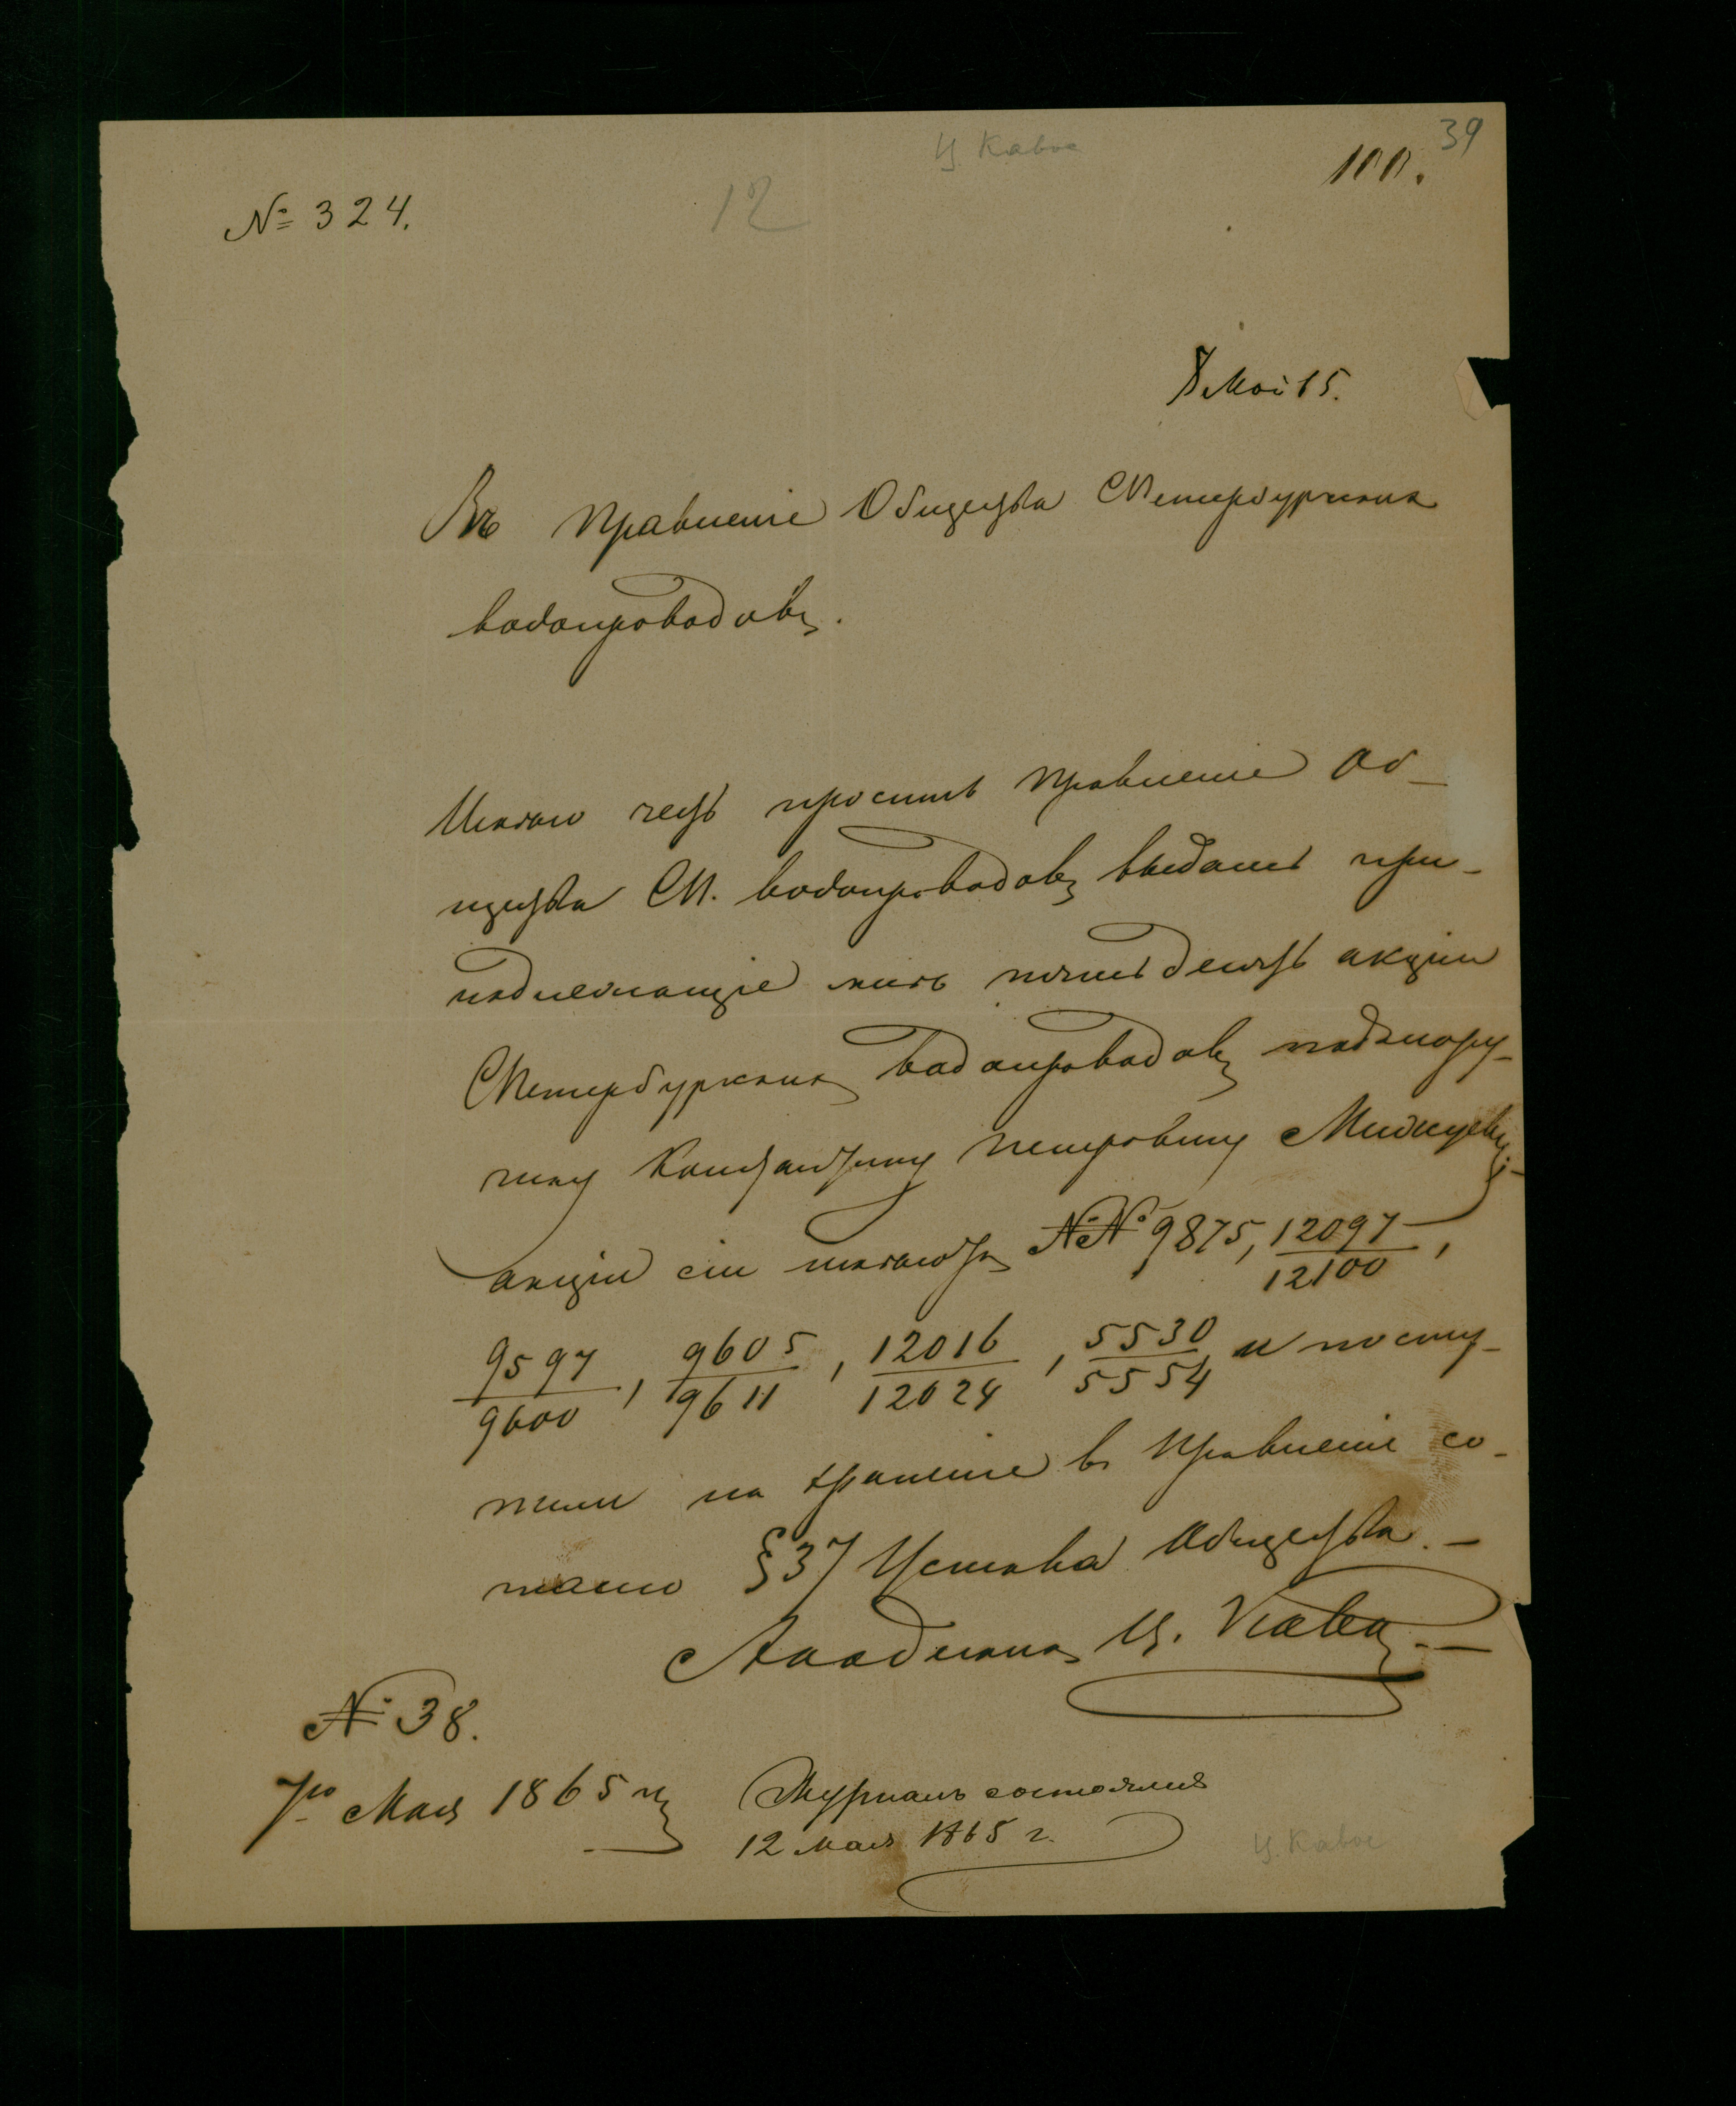 Ц. Кавос
39
100.
№ 324.
12
8 Маі 65.
Въ Правленіе Общества СПетербургскихъ
водопроводовъ.
Имѣю честь просить Правленіе Об-
щества СП. водопроводовъ выдать при-
надлежащіе мнѣ пятьдесятъ акціи
СПетербургскихъ водопроводовъ
Константину Петровичу
акціи сіи №№ 9875, 12097/12100,
9597/9600, 9605/9611, 12016/12024, 5530/5554 и посту-
пили на храненіе въ Правленіе со-
гласно § 37 Устава Общества.-
Академикъ Ц. Кавосъ.-
№ 38.
7го Мая 1865 г.
Журналъ состоялся
12 мая 1865 г.
Ц. Кавос